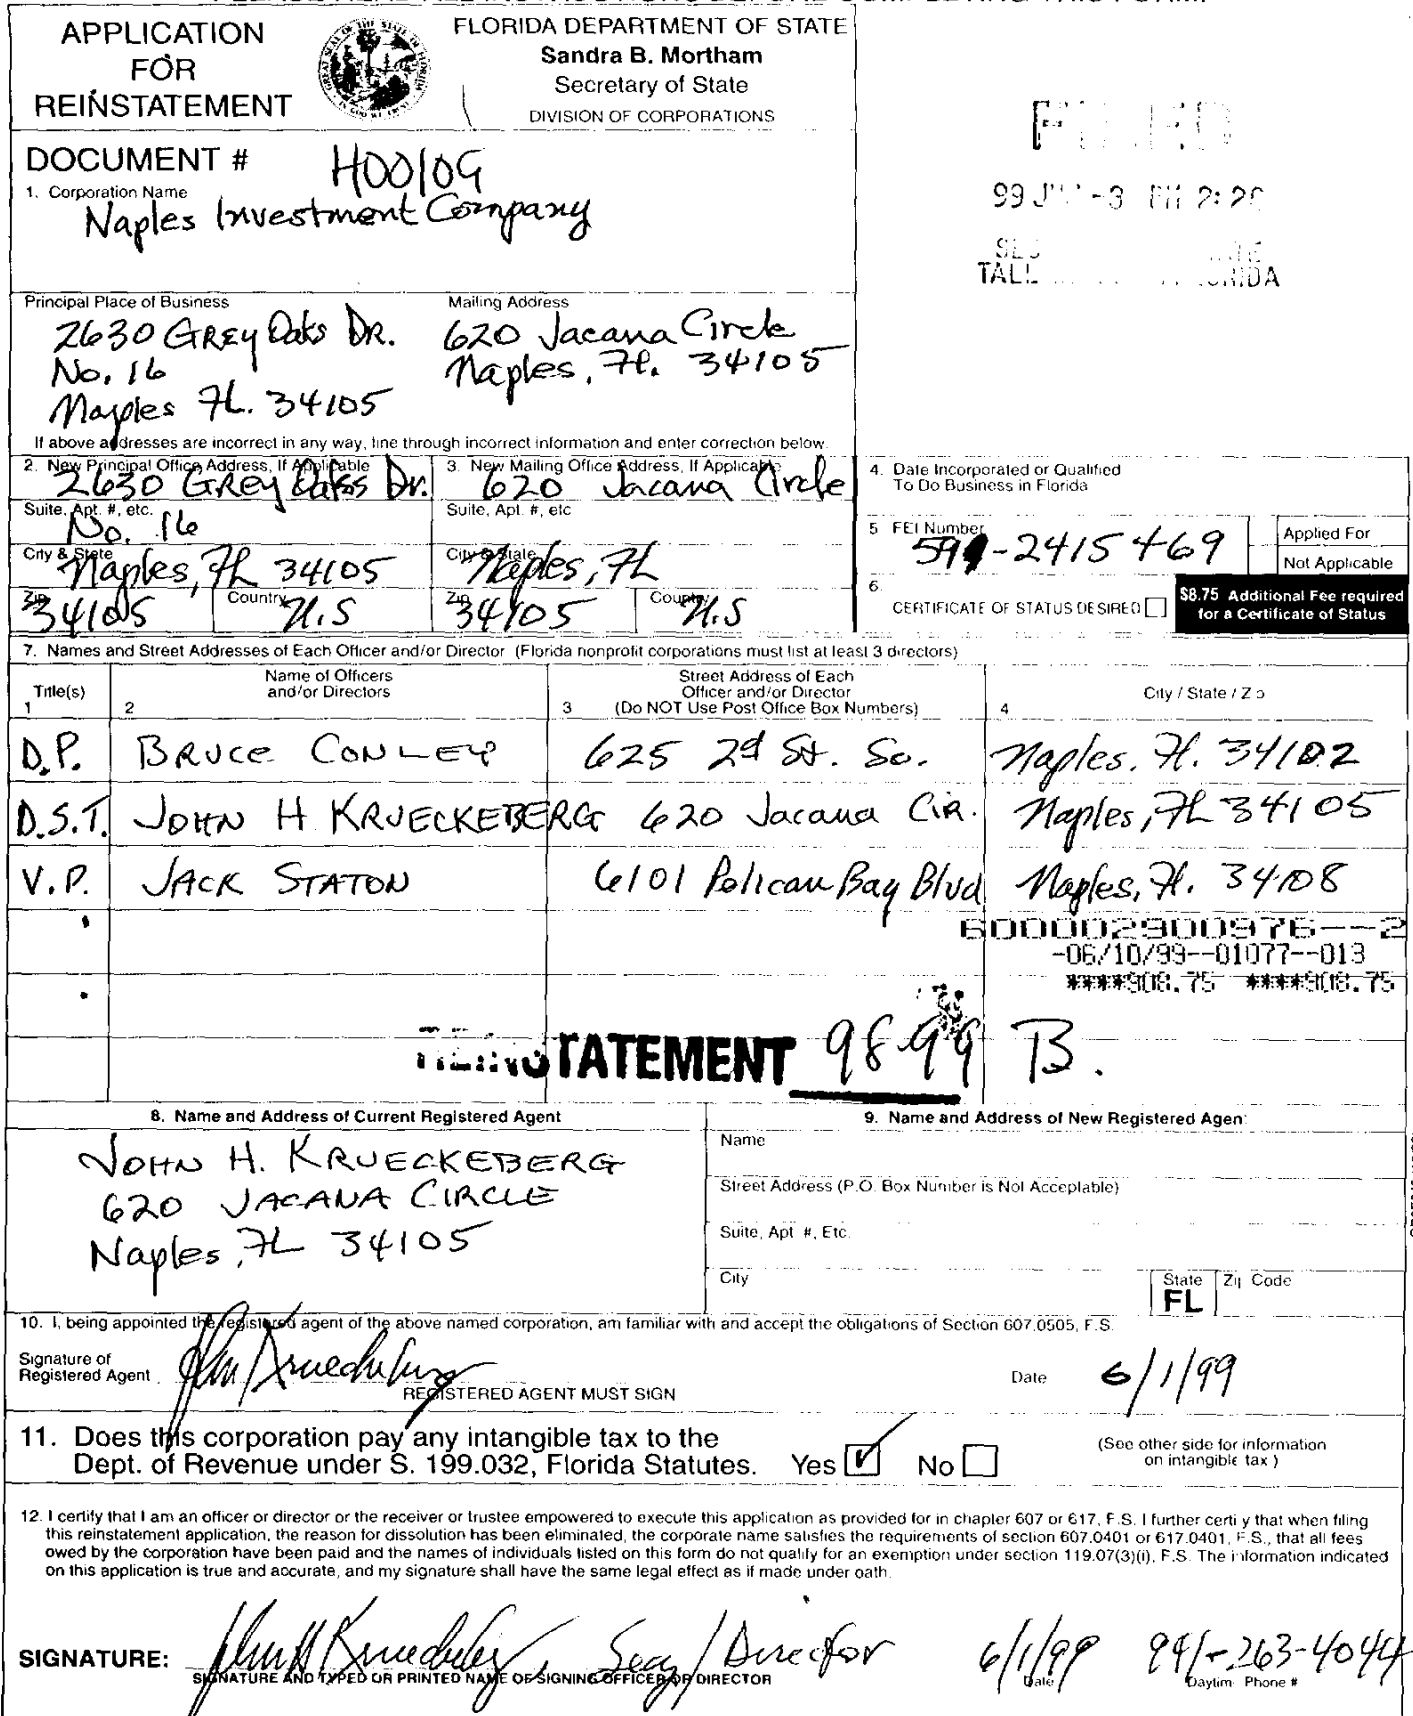 APPLICATION
FOR
REINSTATEMENT
FLORIDA DEPARTMENT OF STATE
Sandra B. Mortham
Secretary of State
DIVISION OF CORPORATIONS
FILED
99 JUN -3 PM 2:26
TALL FLORIDA
DOCUMENT # H00109
1. Corporation Name
Naples Investment Company
Principal Place of Business
2630 GREY Oaks DR.
No. 16
Naples FL. 34105
Mailing Address
620 Jacana Circle
Naples, Fl. 34105
If above addresses are incorrect in any way, line through incorrect information and enter correction below.
2. New Principal Office Address, If Applicable
2630 GREY Oaks Dr.
Suite, Apt. #, etc.
No. 16
City & State
Naples, FL 34105
Zip
34105
Country
U.S
3. New Mailing Office Address, If Applicable
620 Jacana Circle
Suite, Apt. #, etc
City & State
Naples, FL
Zip
34105
Country
U.S
4. Date Incorporated or Qualified
To Do Business in Florida
5 FEI Number
59-2415469
Applied For
Not Applicable
6.
CERTIFICATE OF STATUS DESIRED
$8.75 Additional Fee required
for a Certificate of Status
7. Names and Street Addresses of Each Officer and/or Director (Florida nonprofit corporations must list at least 3 directors)
Title(s)
1
Name of Officers
and/or Directors
2
Street Address of Each
Officer and/or Director
3 (Do NOT Use Post Office Box Numbers)
City / State / Zip
4
D.P. BRUCE CONLEY 625 2d St. So. Naples, Fl. 34102
D.S.T. JOHN H KRUECKEBERG 620 Jacana Cir. Naples, FL 34105
V.P. JACK STATON 6101 Pelican Bay Blvd Naples, Fl. 34108
600002900976--2
-06/10/99--01077--013
****908.75 ****908.75
REINSTATEMENT 98-99 B.
8. Name and Address of Current Registered Agent
JOHN H. KRUECKEBERG
620 JACANA CIRCLE
Naples, FL 34105
9. Name and Address of New Registered Agent
Name
Street Address (P.O. Box Number is Not Acceptable)
Suite, Apt #, Etc.
City
State
FL
Zip Code
10. I, being appointed the registered agent of the above named corporation, am familiar with and accept the obligations of Section 607.0505, F.S.
Signature of
Registered Agent John Krueckeberg
REGISTERED AGENT MUST SIGN
Date 6/1/99
11. Does this corporation pay any intangible tax to the
Dept. of Revenue under S. 199.032, Florida Statutes. Yes No
(See other side for information
on intangible tax )
12. I certify that I am an officer or director or the receiver or trustee empowered to execute this application as provided for in chapter 607 or 617, F.S. I further certify that when filing
this reinstatement application, the reason for dissolution has been eliminated, the corporate name satisfies the requirements of section 607.0401 or 617.0401, F.S., that all fees
owed by the corporation have been paid and the names of individuals listed on this form do not qualify for an exemption under section 119.07(3)(i), F.S. The information indicated
on this application is true and accurate, and my signature shall have the same legal effect as if made under oath.
SIGNATURE: John H Krueckeberg, Secy/Director 6/1/99 941-263-4044
SIGNATURE AND TYPED OR PRINTED NAME OF SIGNING OFFICER OR DIRECTOR
Date
Daytim Phone #